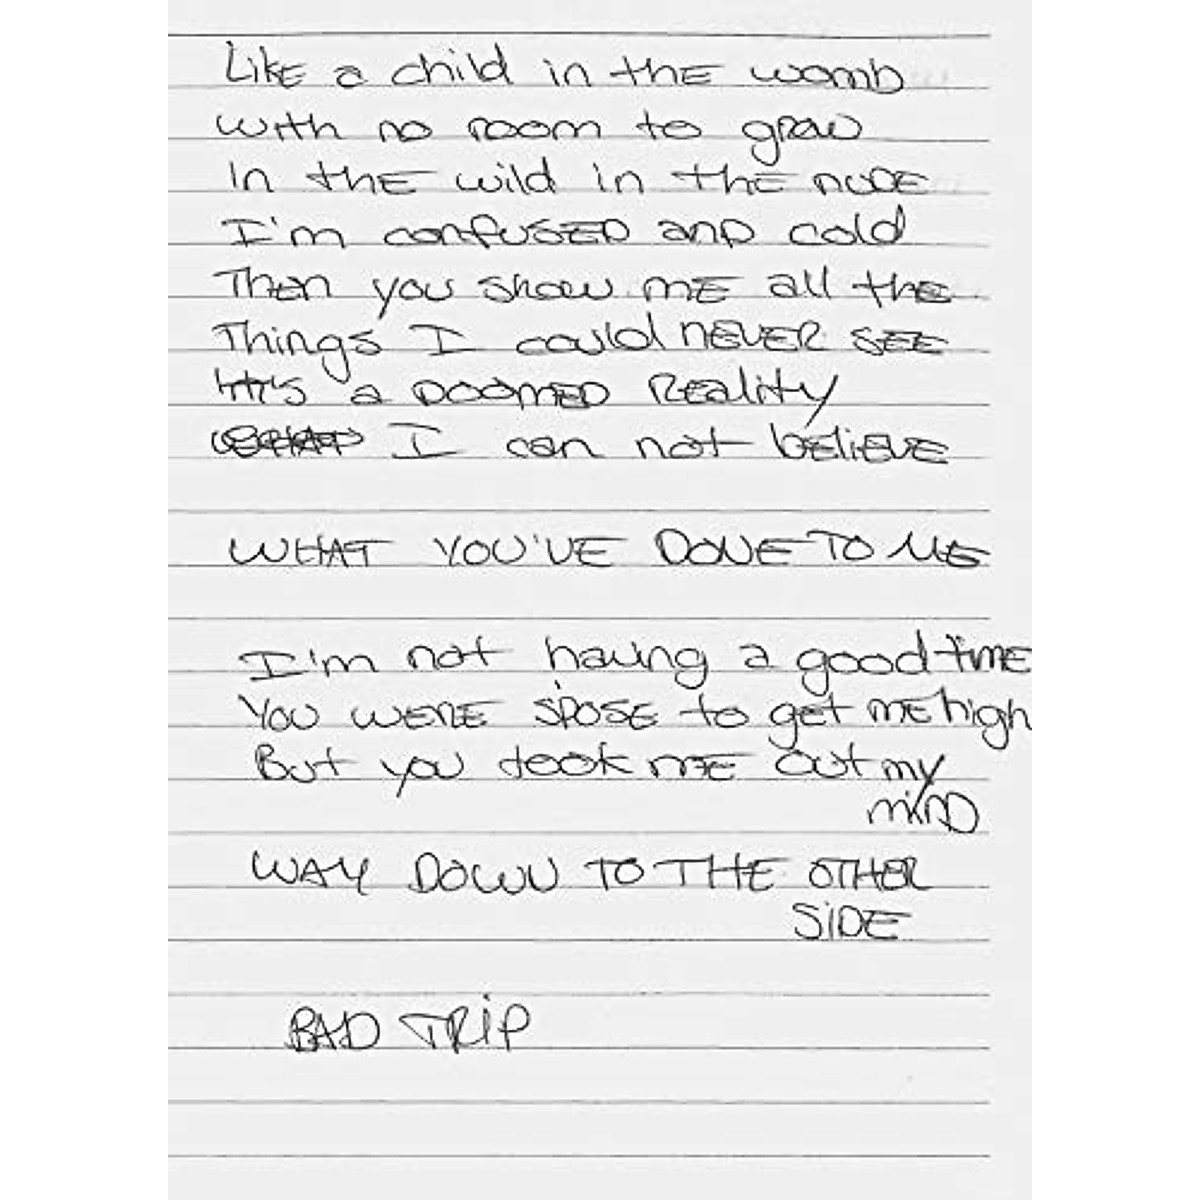 Like a child in the womb
with no room to grow
In the wild in the nude
I'm confused and cold
Then you show me all the
Things I could never see
It's a doomed Reality
I can not believe
WHAT YOU'VE DONE TO ME
I'm not having a good time
You were spose to get me high
But you took me out my
mind
WAY DOWN TO THE OTHER
SIDE
BAD TRIP